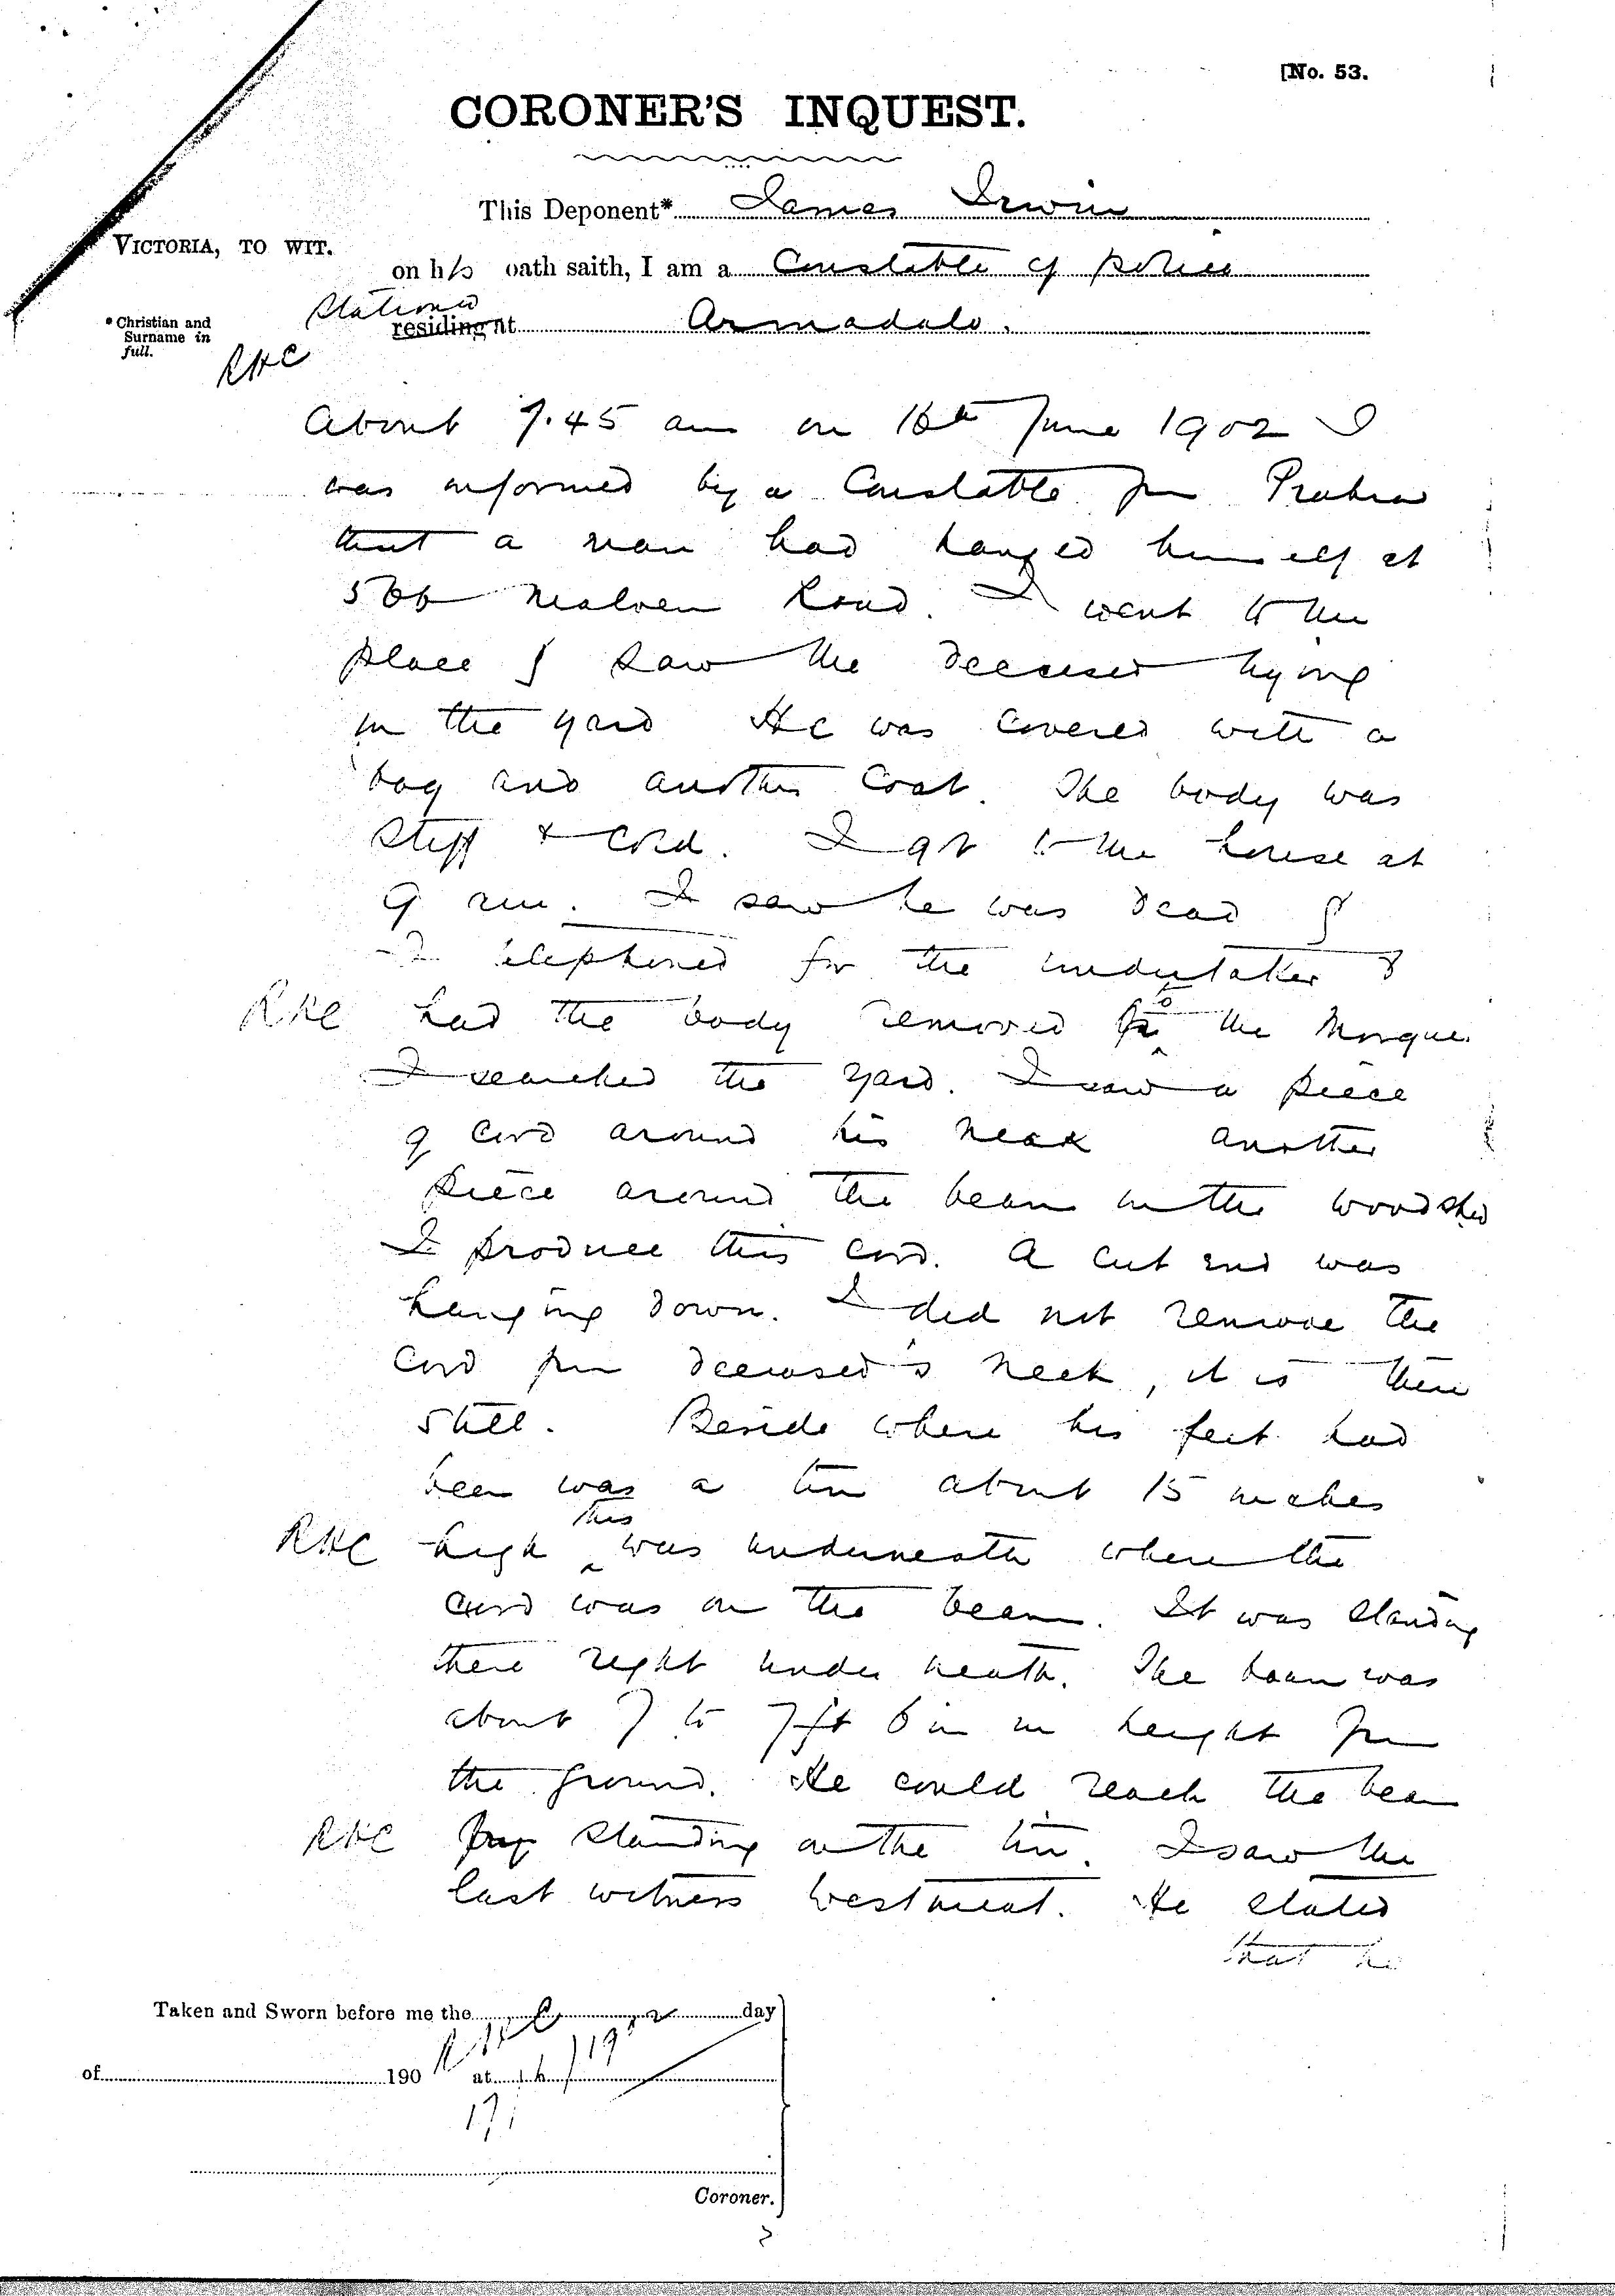 [No. 53.
CORONER'S INQUEST.
This Deponent* James Irwin
VICTORIA, TO WIT.
on his oath saith, I am a Constable of police
stationed
residing at Armadale.
* Christian and
Surname in
full.
RHC
About 7.45 am on 16th June 1902 I
was informed by a Constable from Prahran
that a man had hanged himself at
566 Malvern Road. I went to the
place & saw the deceased lying
in the yard He was covered with a
bag and another coat. The body was
stiff & cold. I got to the house at
9 am. I saw he was dead &
I telephoned for the undertaker &
to
RHC had the body removed the Morgue.
I searched the yard. I saw a piece
of cord around his neck another
piece around the beam in the woodshed
I produce this cord. A cut end was
hanging down. I did not remove the
cord from deceased's neck, it is there
still. Beside where his feet had
been was a tin about 15 inches
this
RHC high was underneath where the
cord was on the beam. It was standing
there right under neath. The beam was
about 7 to 7ft 6 in in height from
the ground. He could reach the beam
RHC standing on the tin. I saw the
last witness Westneat. He stated
that he
Taken and Sworn before me the day
of 190 at
RHC
17/
Coroner.